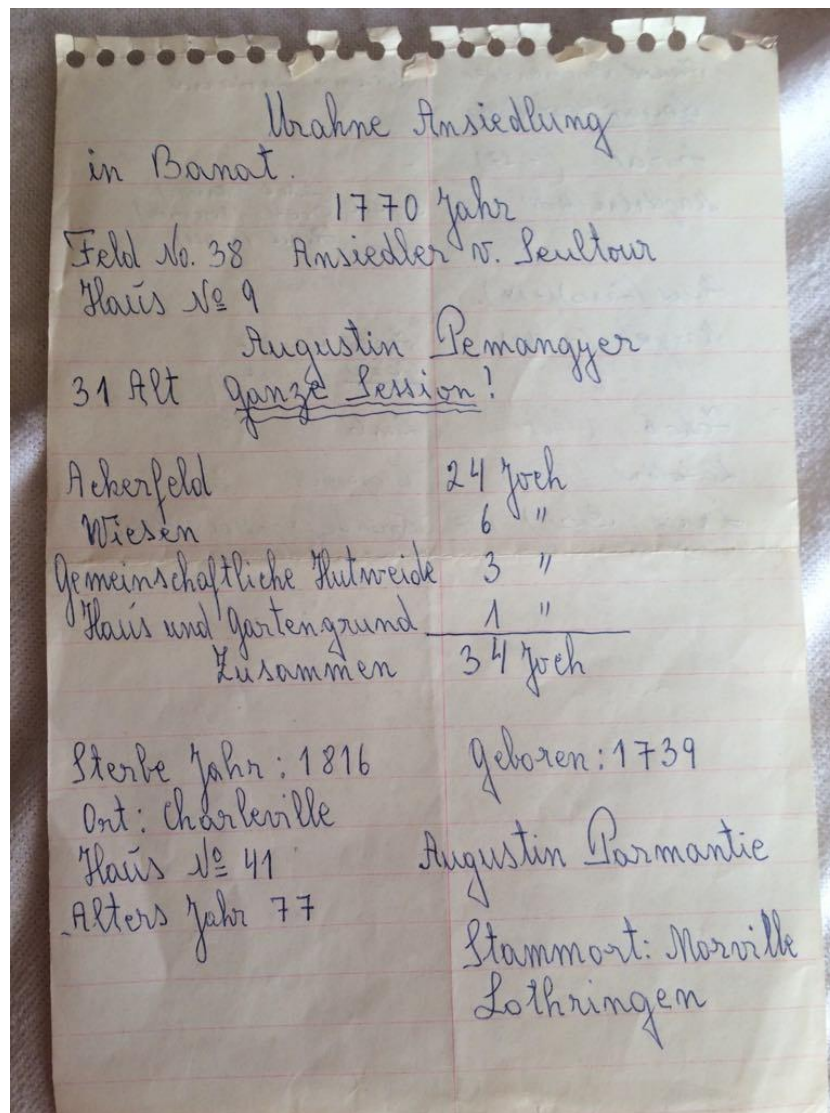 Urahne Ansiedlung
in Banat.
1770 Jahr
Feld No. 38 Ansiedler v. Seultour
Haus № 9
Augustin Pemangyer
31 Alt ganze Session!
Ackerfeld 24 Joch
Wiesen 6 "
Gemeinschaftliche Hutweide 3 "
Haus und Gartengrund 1 "
Zusammen 34 Joch
Sterbe Jahr: 1816 Geboren: 1739
Ort: Charleville
Haus № 41 Augustin Parmantie
Alters Jahr 77
Stammort: Morville
Lothringen